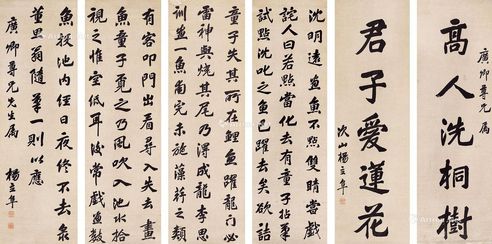 廣卿尊兄屬
高人洗桐樹
君子愛蓮花
次山楊立年
沈明遠畫魚不點雙睛嘗戲
詫人曰若點當化去有童子拈筆
試點沈叱之魚已躍去矣欲詰
童子失其所在鯉魚躍龍門必
雷神與燒其尾乃得成龍李思
訓畫一魚甫完未施藻荇之類
有客叩門出看尋入失去畫
魚童子覓之乃風吹入池水拾
視之惟空紙耳後常戲畫數
魚投池內經日夜終不去
翁隨筆一則以應
廣卿尊兄先生屬
楊立年